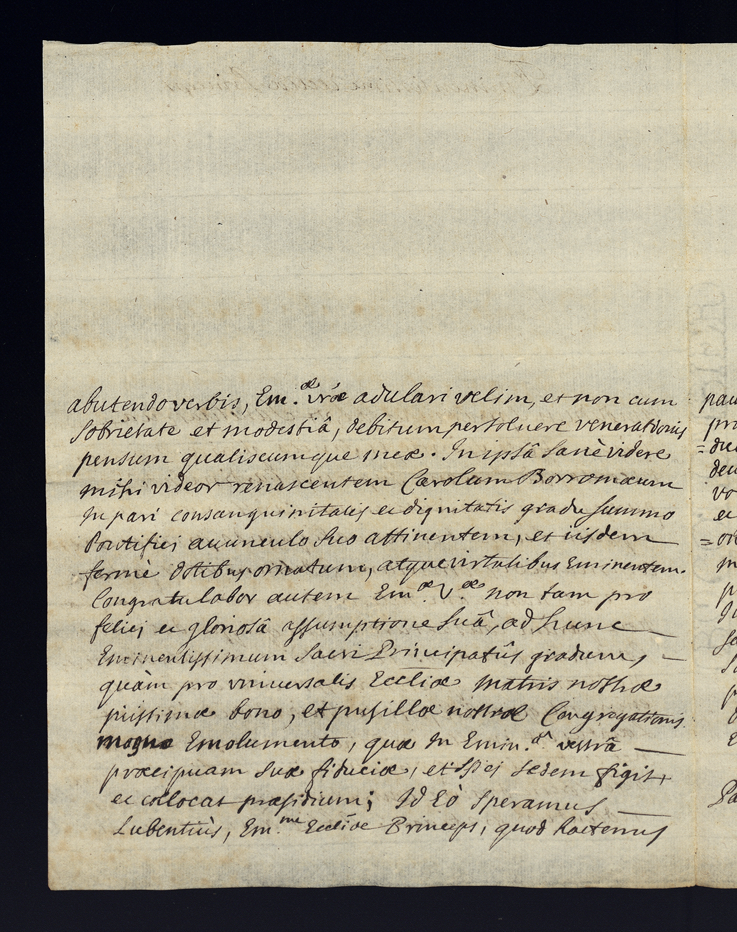 abutendo verbis, Em.æ vr̃æ adulari velim, et non cum
sobrietate et modestiâ, debitum persoluere venerationis
pensum qualiscumque meæ. In ipsâ sanè videre
mihi videor renascentem Carolum Borromæum
In pari consanguinitatis et dignitatis gradu summo
Pontifici auunculo suo attinentem, et iisdem
fermè dotibus ornatum, atque virtutibus Eminentem.
Congratulabor autem Em.æ V.æ non tam pro
felici et gloriosâ assumptione suâ, ad hunc
Eminentissimum sacri Principatûs gradum,
quàm pro vniuersalis Eccliæ matris nostræ
piissimæ bono, et pusillæ nostræ Congregationis
magno Emolumento, quæ In Emin.â vestrâ
præcipuam suæ fiduciæ, et spei sedem figit,
et collocat præsidium; Id eò speramus
Lubentiùs, Em.me Eccliæ Princeps, quod hactenus